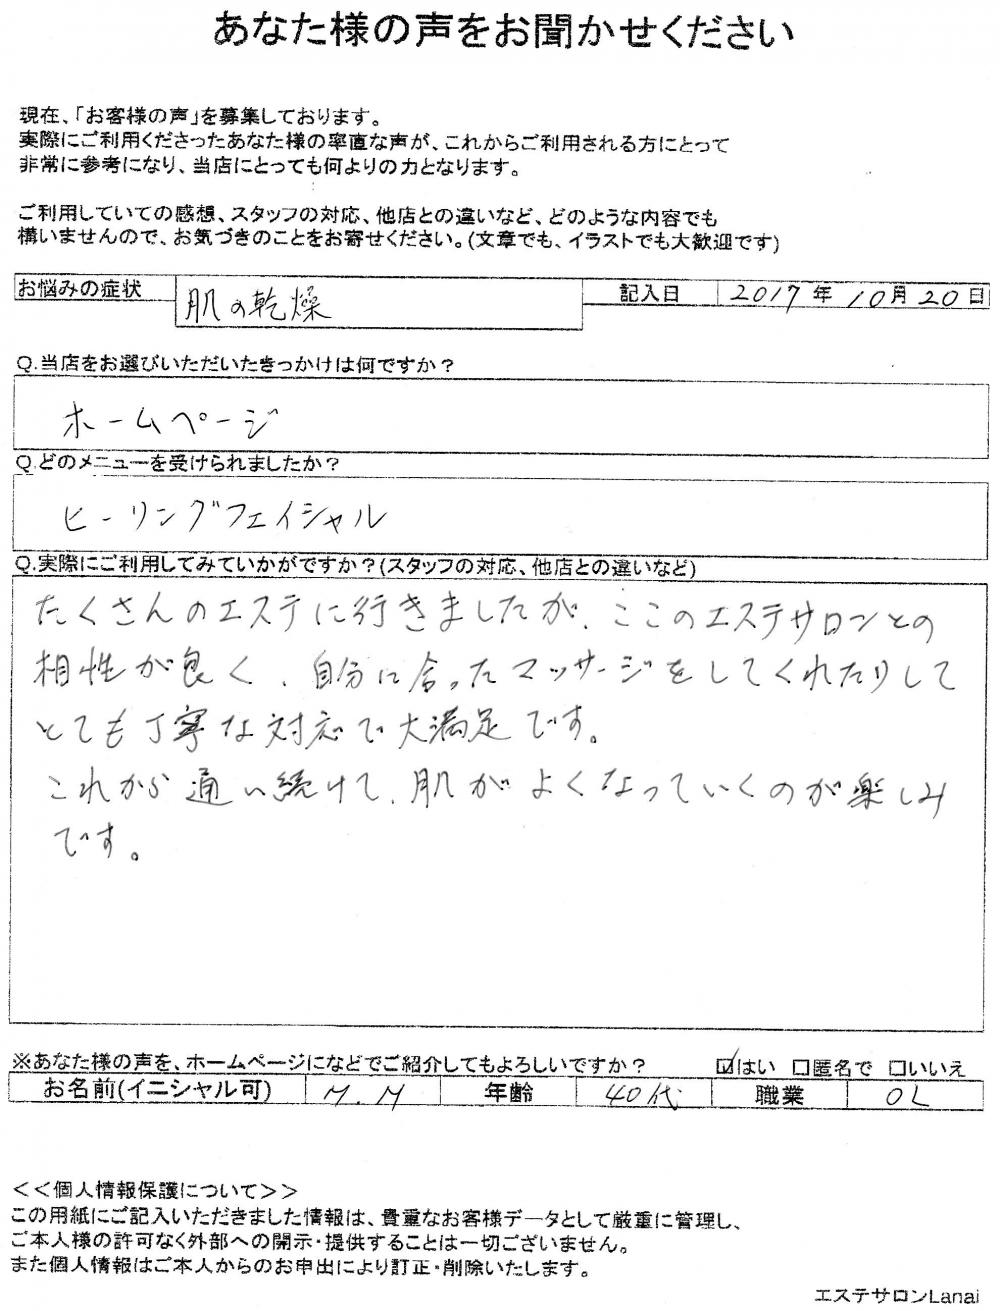 あなた様の声をお聞かせください
現在、「お客様の声」を募集しております。
実際にご利用くださったあなた様の率直な声が、これからご利用される方にとって
非常に参考になり、当店にとっても何よりの力となります。
ご利用していての感想、スタッフの対応、他店との違いなど、どのような内容でも
構いませんので、お気づきのことをお寄せください。(文章でも、イラストでも大歓迎です)
お悩みの症状 肌の乾燥 記入日 2017年10月20日
Q.当店をお選びいただいたきっかけは何ですか？
ホームページ
Q.どのメニューを受けられましたか？
ヒーリングフェイシャル
Q.実際にご利用してみていかがですか？(スタッフの対応、他店との違いなど)
たくさんのエステに行きましたが、ここのエステサロンとの
相性が良く、自分に合ったマッサージをしてくれたりして
とても丁寧な対応で大満足です。
これから通い続けて、肌がよくなっていくのが楽しみ
です。
※あなた様の声を、ホームページになどでご紹介してもよろしいですか？ ☑はい □匿名で □いいえ
お名前(イニシャル可) M.M 年齢 40代 職業 OL
＜＜個人情報保護について＞＞
この用紙にご記入いただきました情報は、貴重なお客様データとして厳重に管理し、
ご本人様の許可なく外部への開示・提供することは一切ございません。
また個人情報はご本人からのお申出により訂正・削除いたします。
エステサロンLanai